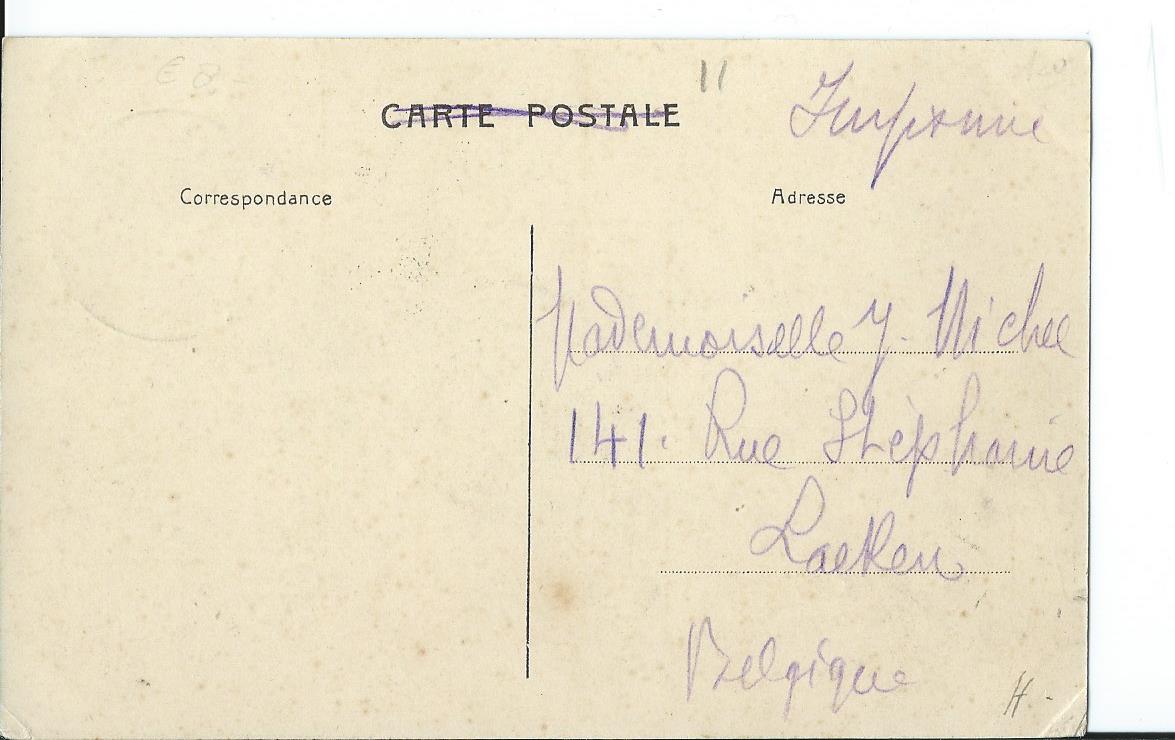 € 8.-
11
Imprimé
CARTE POSTALE
Correspondance
Adresse
Mademoiselle J. Michel
141. Rue Stéphanie
Laeken
Belgique
H -